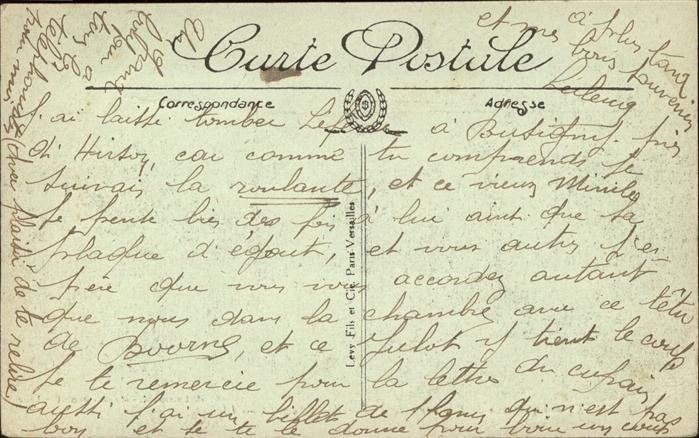 Carte Postale
Correspondance
Adresse
J'ai laissé tomber à Busigny, près
d'Hirson, car comme tu comprends je
suivais la roulante, et ce vieux
je pense bien des fois à lui ainsi que sa
plaque d'égout, et vous autres j'es
père que vous vous accordez autant
que nous dans la chambre avec ce têtu
de et ce Julot y tient le coup
Je te remercie pour la lettre du
aussi j'ai un billet de qui n'est pas
bon et je te le donne pour boire un coup
et mes à plus tard
bons souvenirs
Levy Fils et Cie, Paris-Versailles
plaisir de te relire